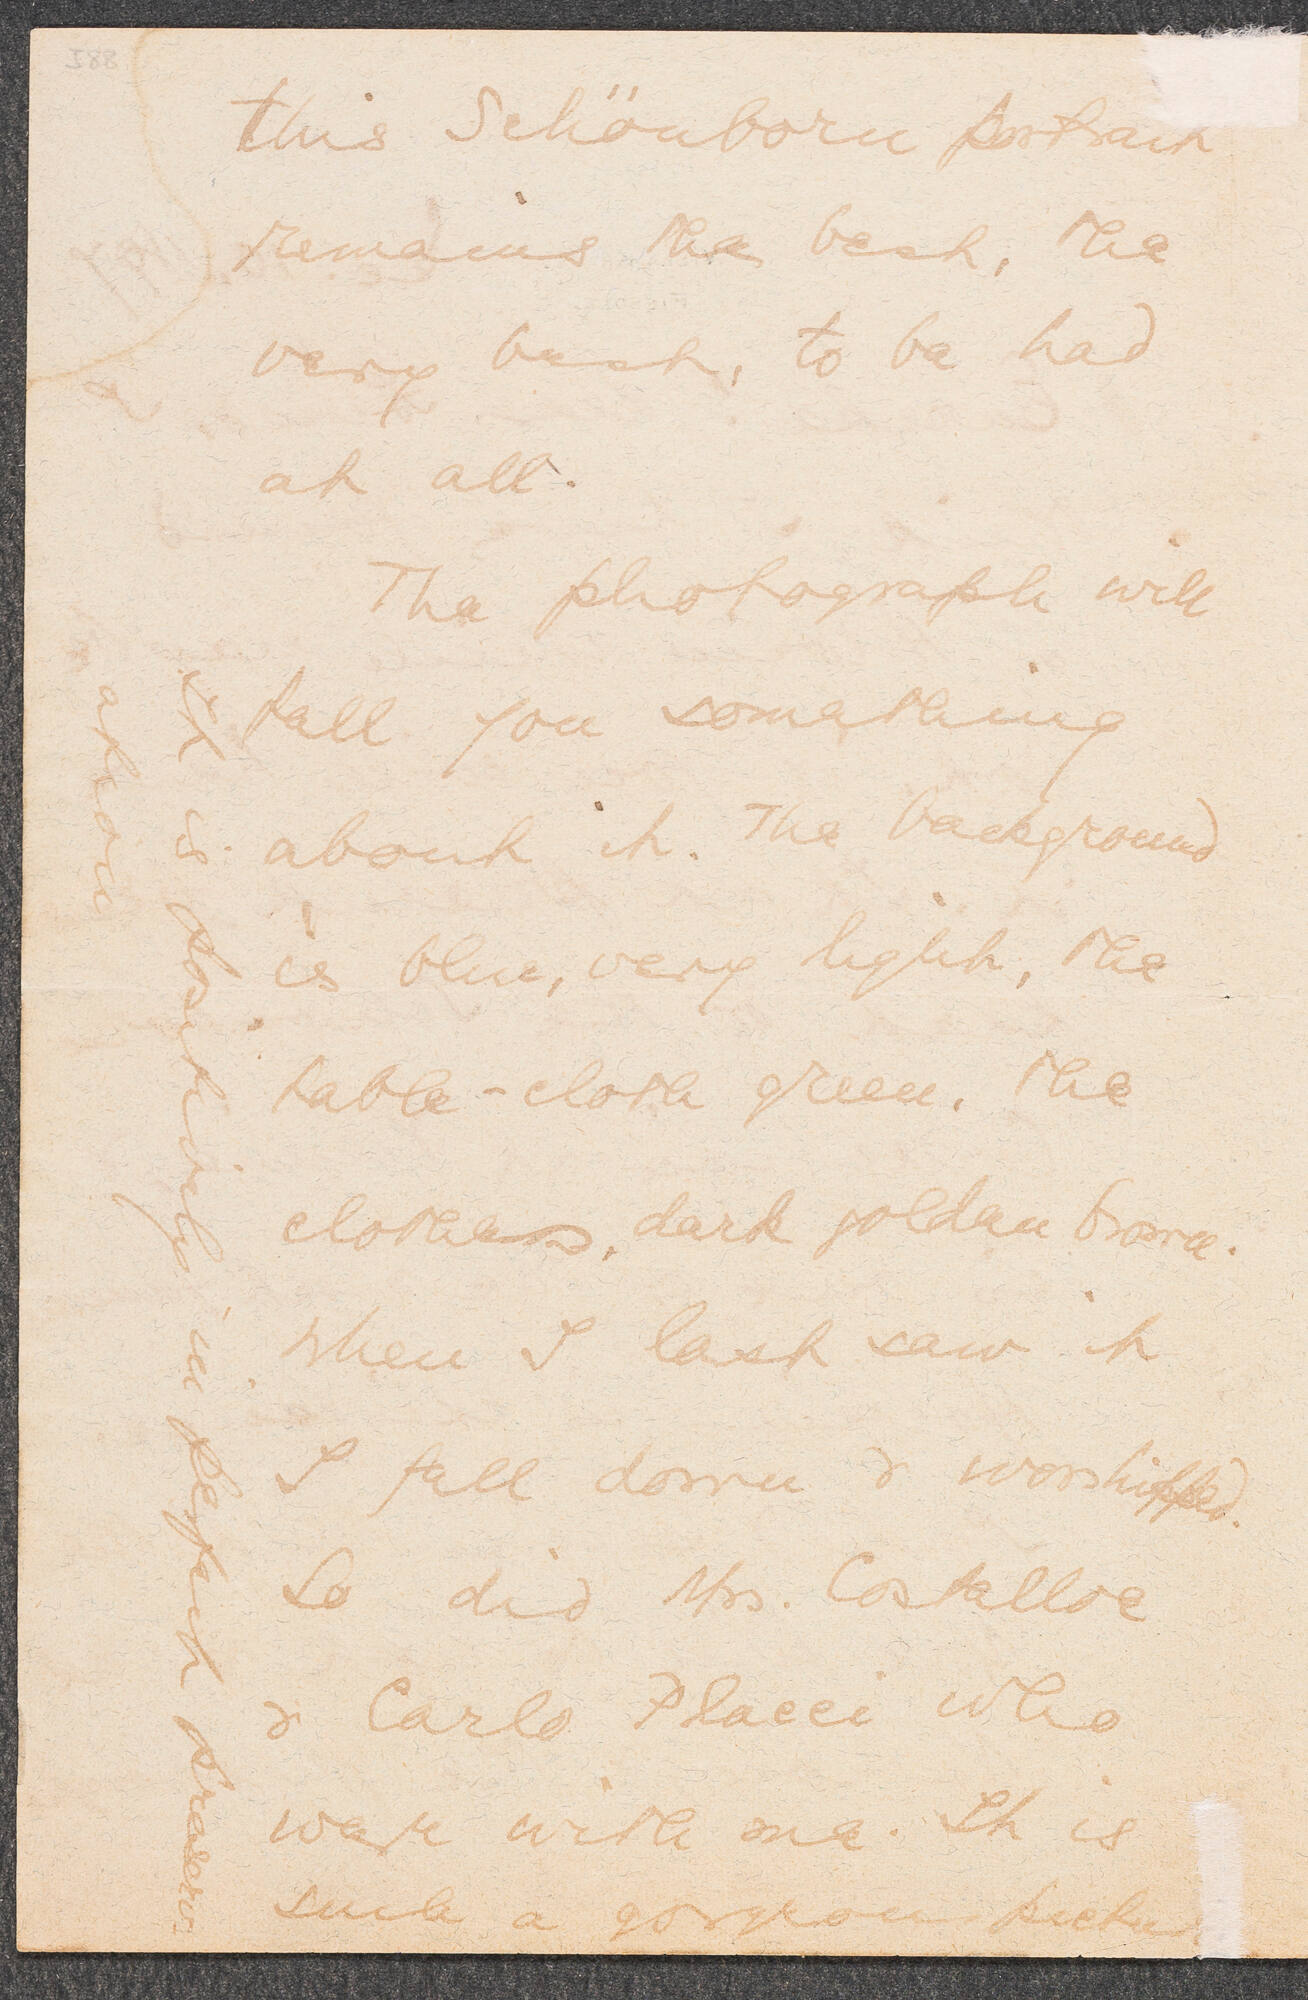 this Schönborn portrait
remains the best, the
very best, to be had
at all.
The photograph will
tell you something
about it. The background
is blue, very light, the
table-cloth green. the
clothes, dark golden brown.
When I last saw it
I fell down & worshipped.
So did Mrs. Costelloe
& Carlo Placci who
were with me. It is
such a gorgeous picture
It is positively in perfect preserv-
ation